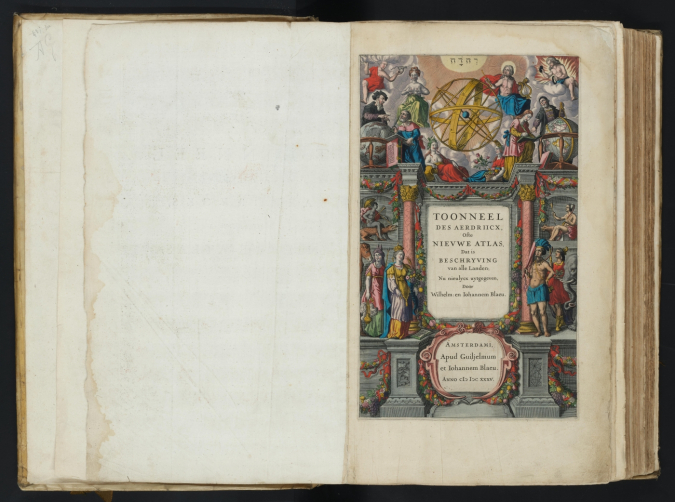 יהוה
TOONNEEL
DES AERDRIICX,
Ofte
NIEVWE ATLAS,
Dat is
BESCHRYVING
van alle Landen;
Nu nieulycx uytgegeven,
Door
Wilhelm en Iohannem Blaeu.
AMSTERDAMI,
Apud Guiljelmum
et Iohannem Blaeu.
ANNO CIƆ IƆC XXXV.